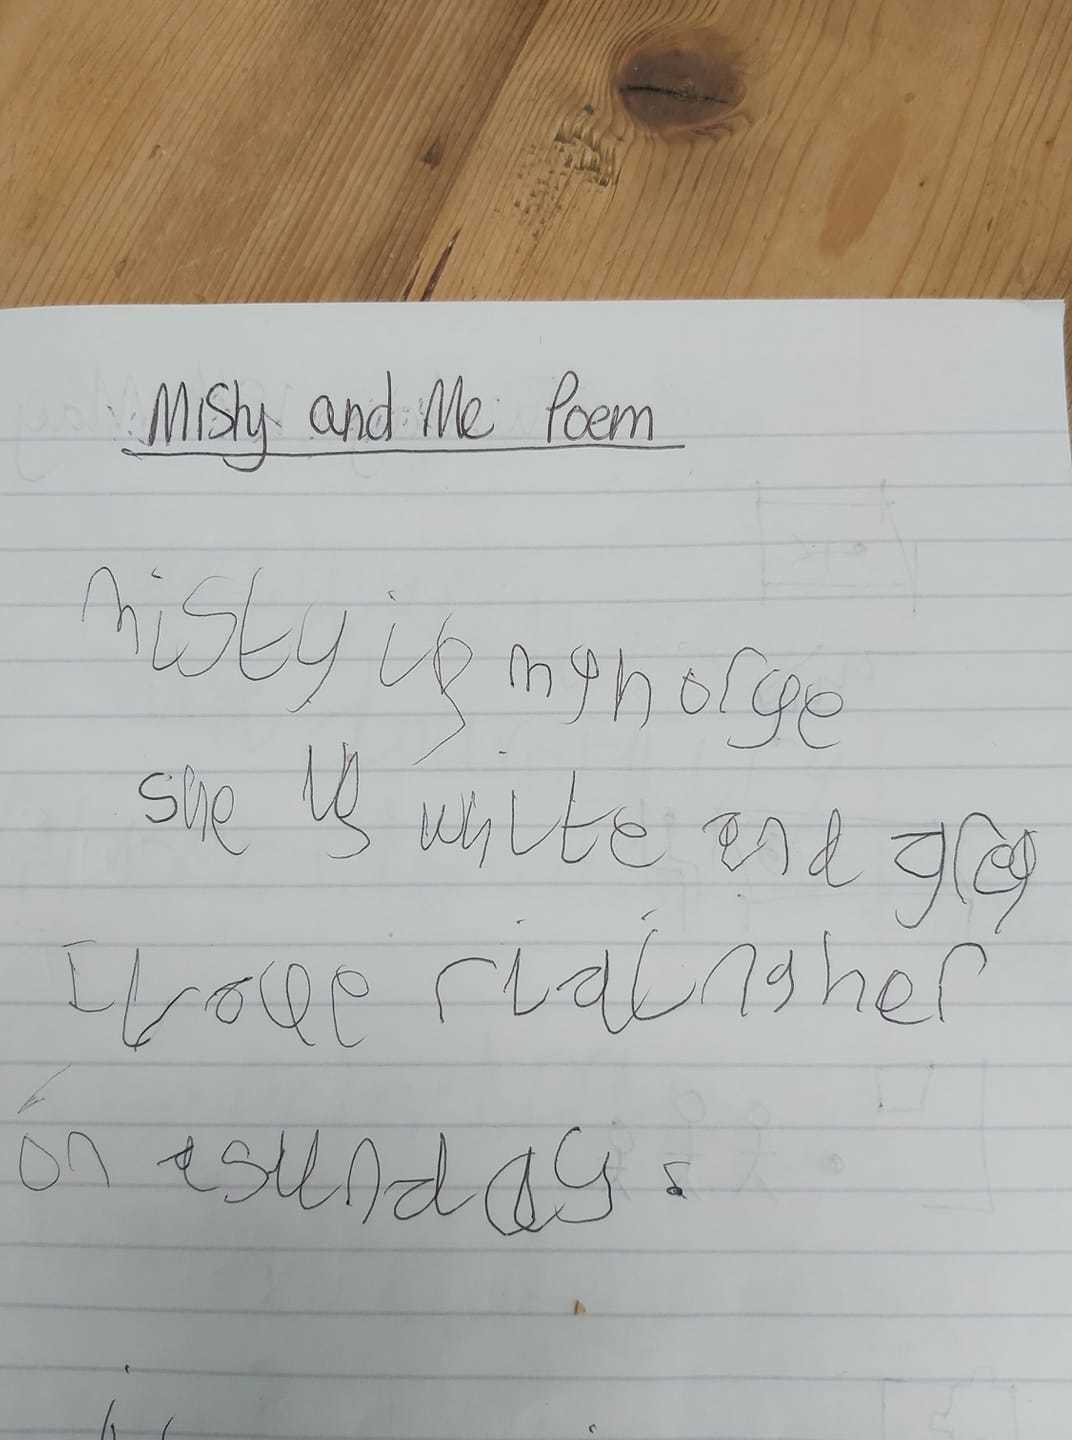 Misty and Me Poem
Misty is my horse
she is white and grey
I love riding her
on a sunday.